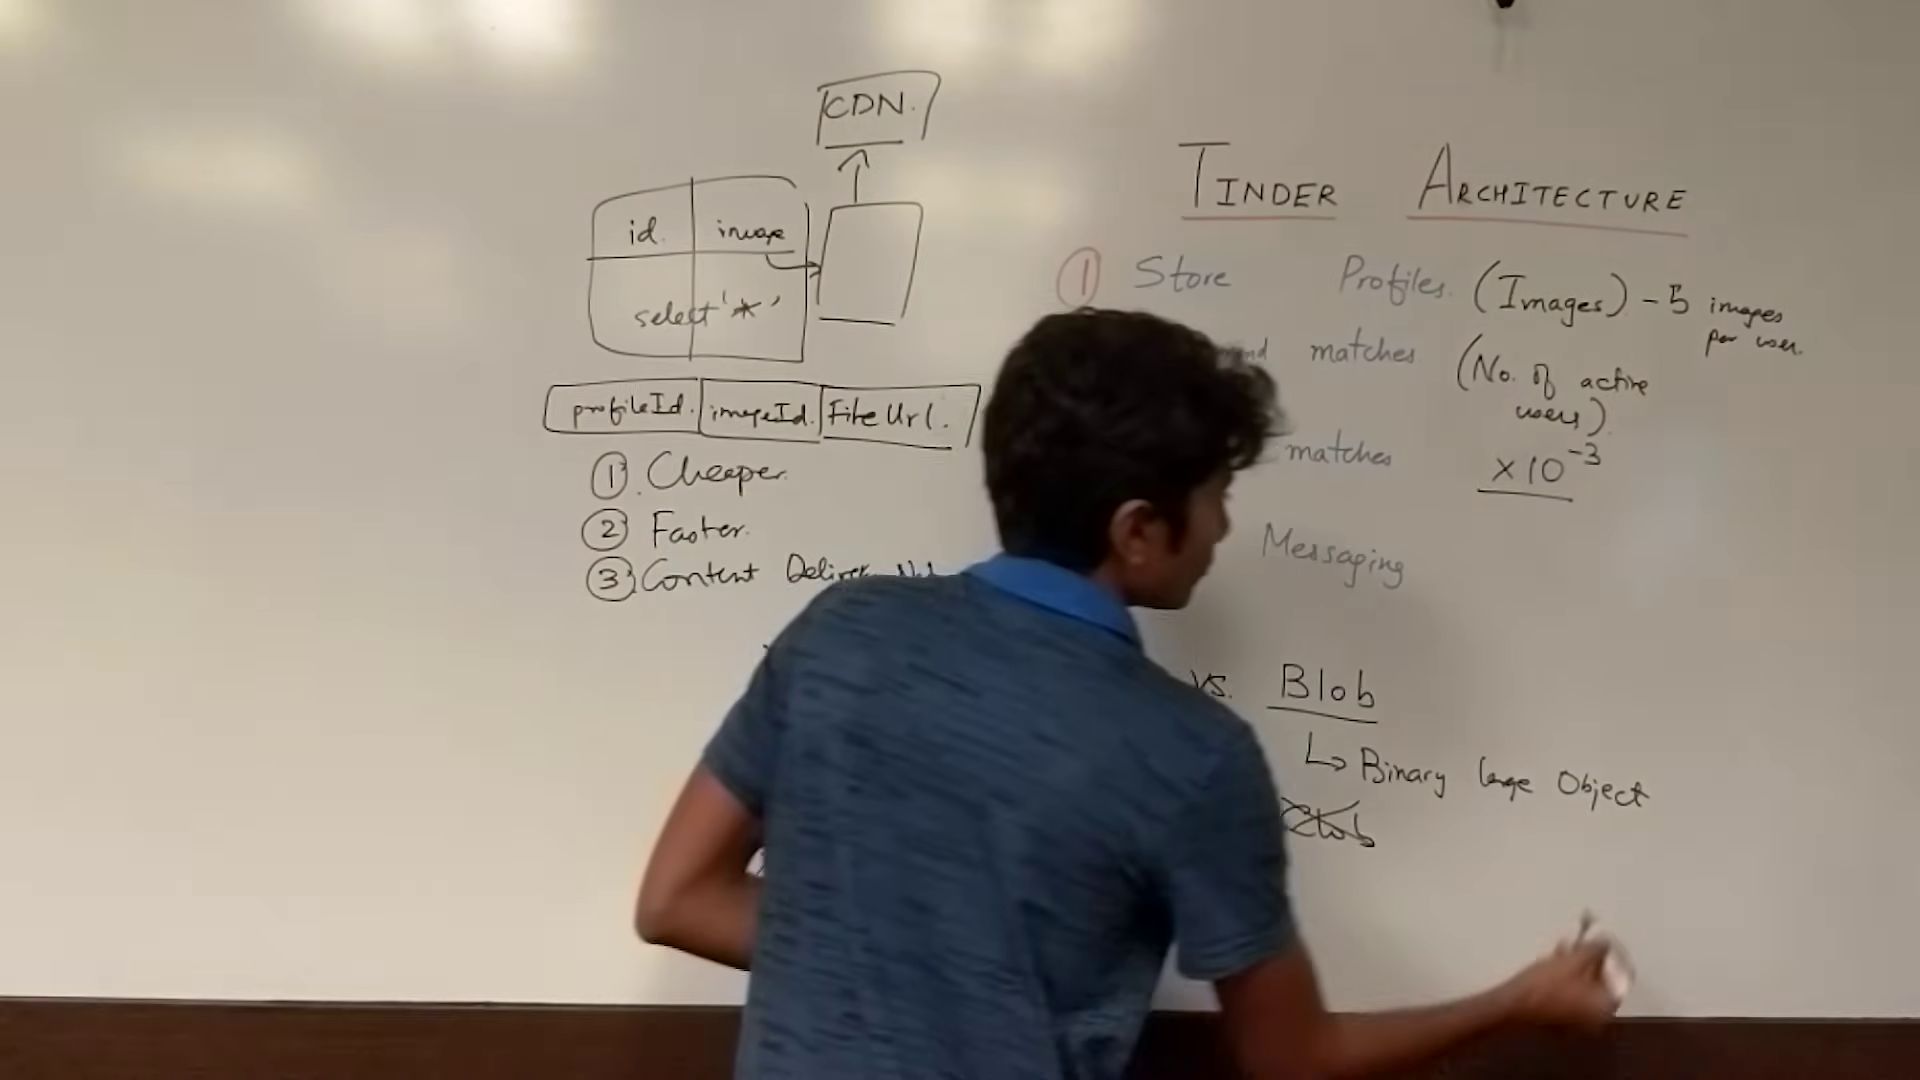 CDN.
id. image
select '*'
profileId. imageId. File Url.
① Cheaper.
② Faster.
③ Content
TINDER ARCHITECTURE
① Store Profiles. (Images) - 5 images
per user.
matches (No. of active
users)
matches ×10⁻³
Messaging
vs. Blob
↳ Binary large Object